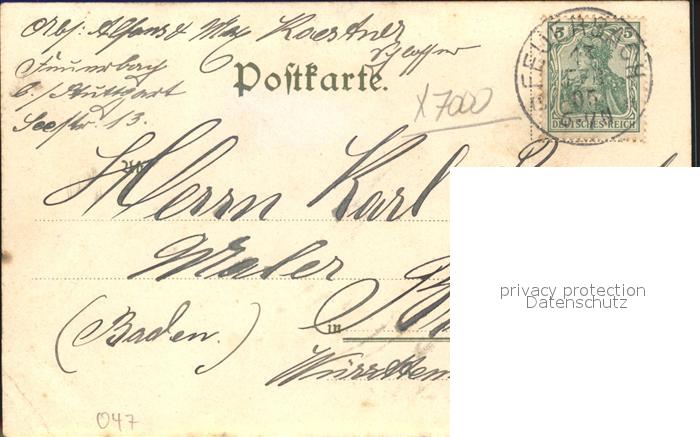 Abs: Alfons & Max Koestner
Schlosser
Feuerbach
b./Stuttgart
Seestr. 13.
Postkarte.
X7000
FEUERBACH
05
5 5
DEUTSCHES REICH
An
Herrn Karl
Maler
(Baden.) in
Württem
privacy protection
Datenschutz
047